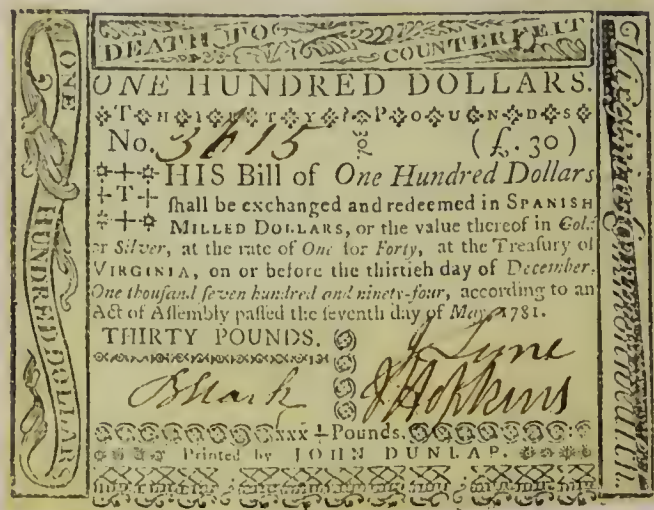 DEATH TO
COUNTERFEIT
ONE HUNDRED DOLLARS.
THIRTY POUNDS
No. 3615 30l. (£. 30)
THIS Bill of One Hundred Dollars
ſhall be exchanged and redeemed in SPANISH
MILLED DOLLARS, or the value thereof in Gold
or Silver, at the rate of One for Forty, at the Treaſury of
VIRGINIA, on or before the thirtieth day of December,
One thouſand ſeven hundred and ninety-four, according to an
Act of Aſſembly paſſed the ſeventh day of May, 1781.
THIRTY POUNDS.
J Lyne
B Stark J Hopkins
xxx Pounds.
Printed by JOHN DUNLAP.
ONE HUNDRED DOLLAR
Virginia Commonwealth.